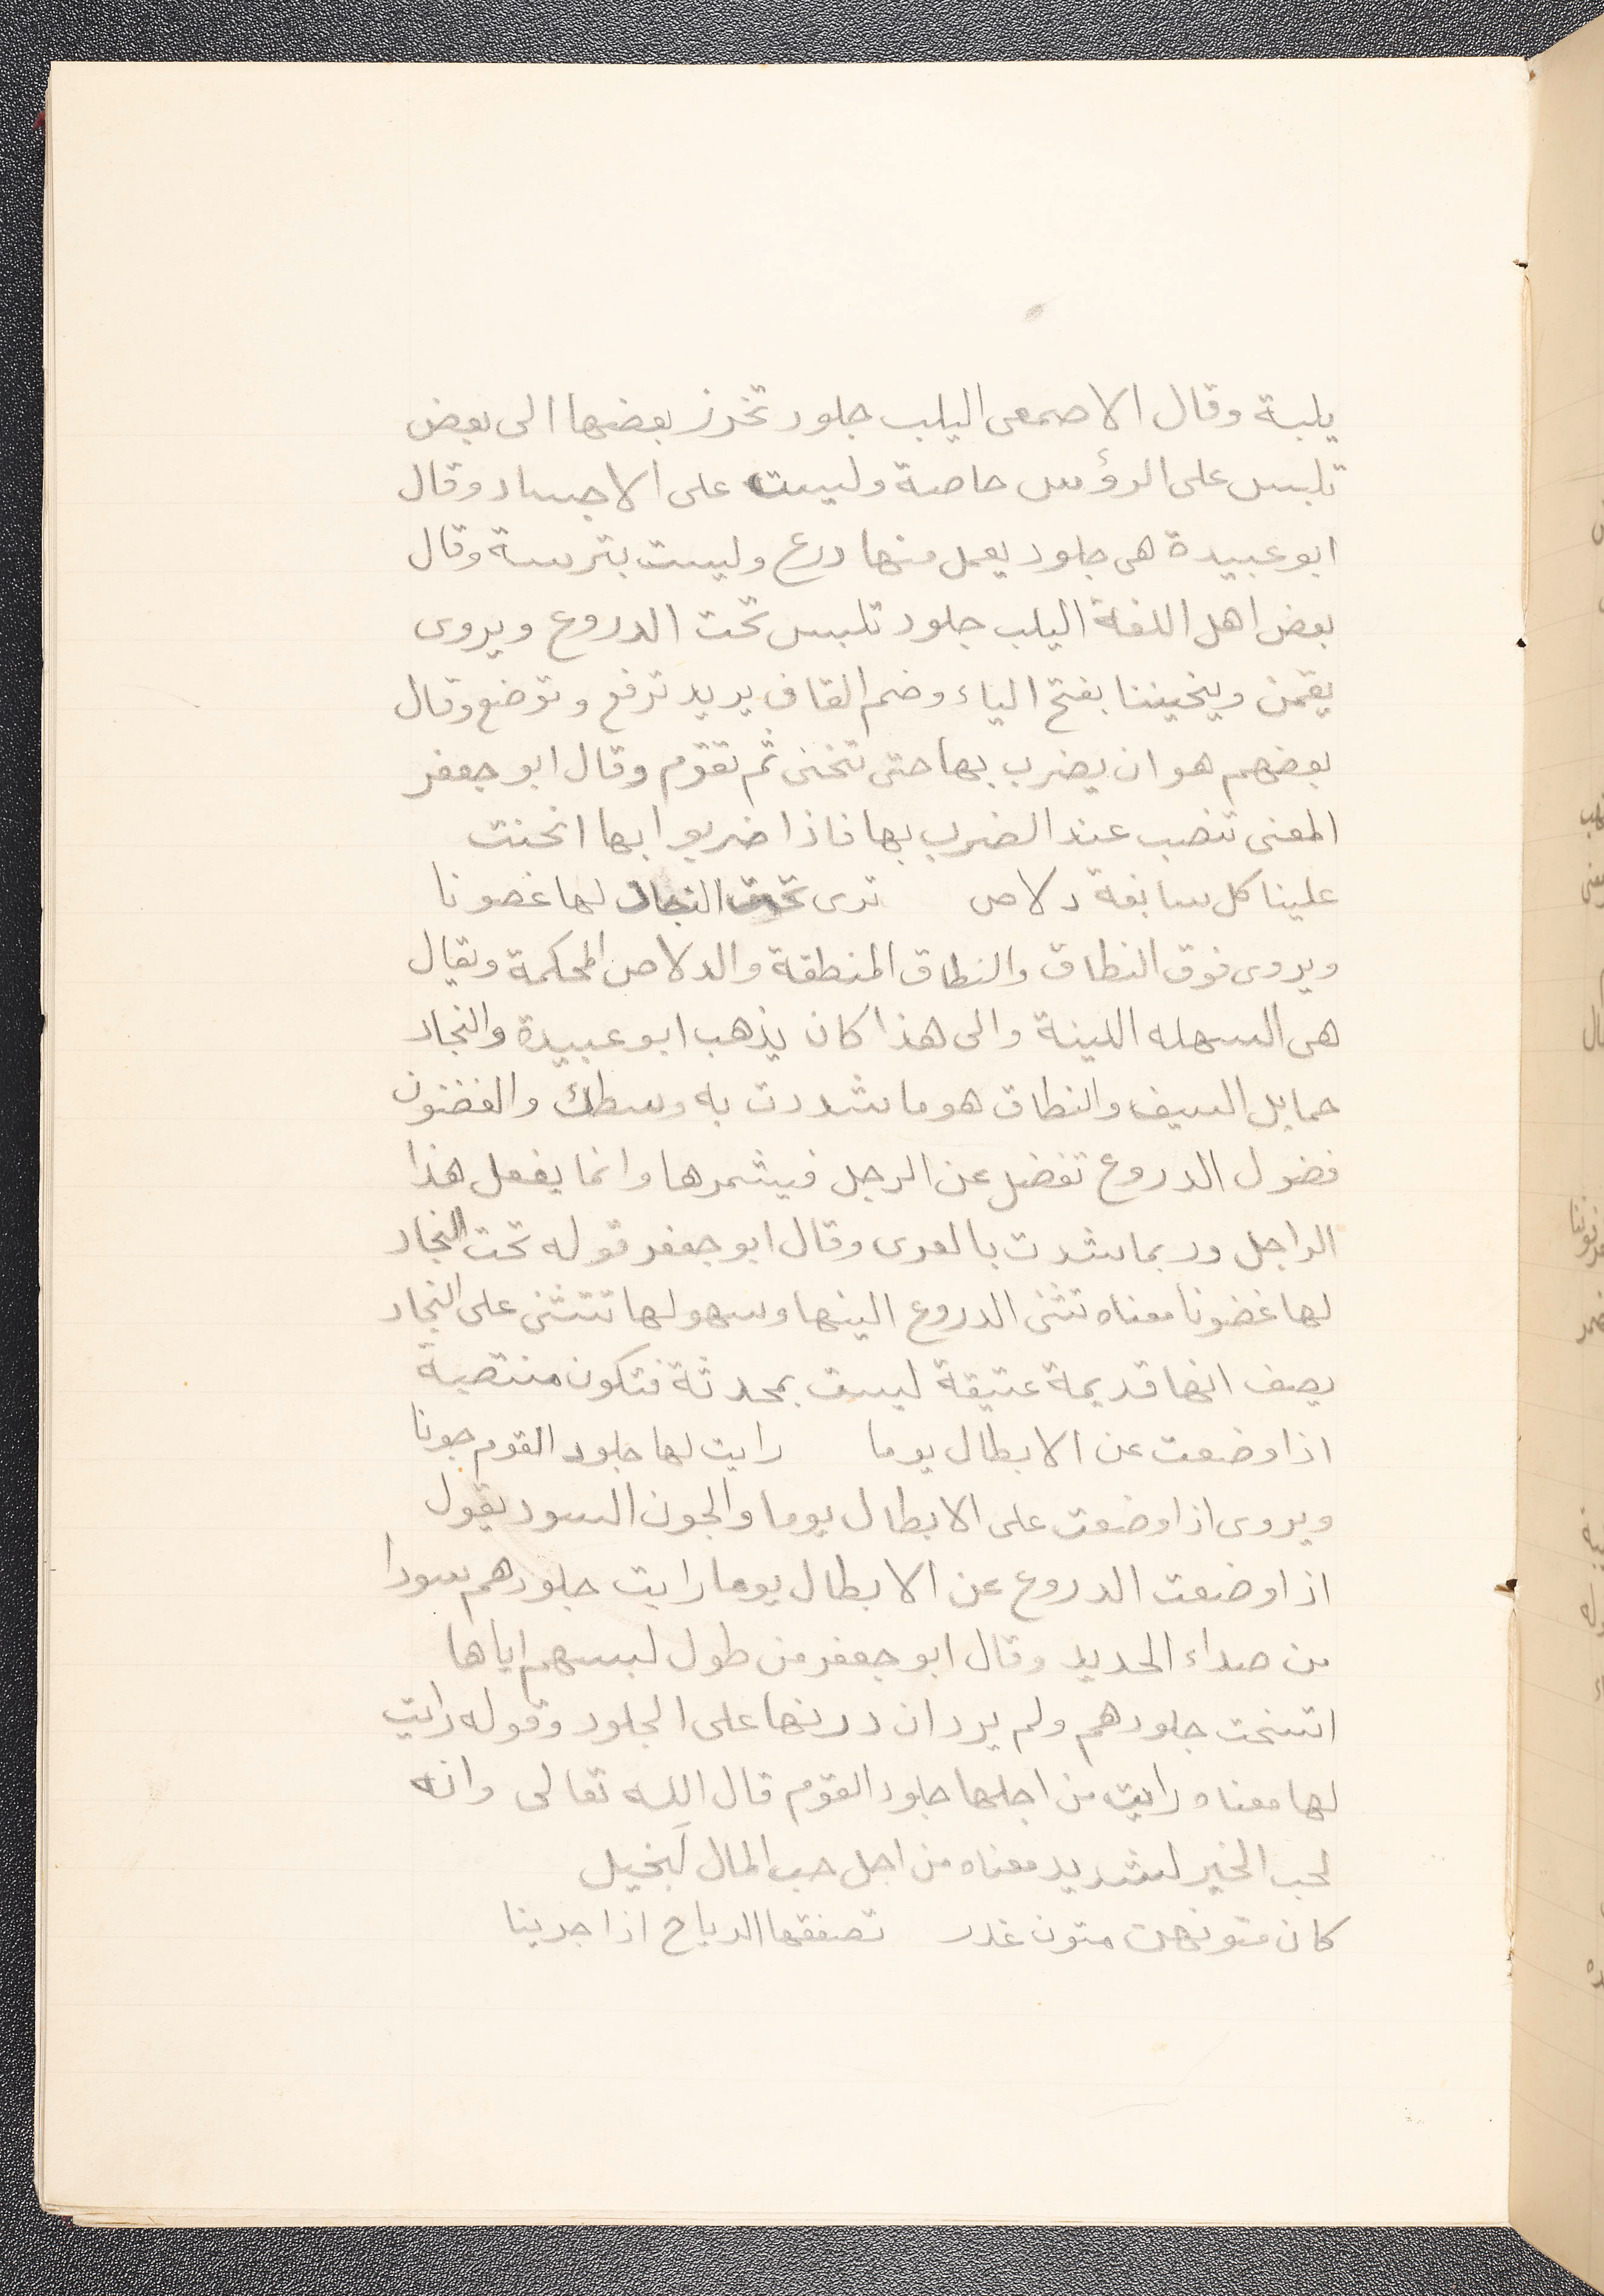 يلبة وقال الاصمعى اليلب جلود تخرز بعضها الى بعض
تلبس على الرؤس خاصة وليست على الاجساد وقال
ابو عبيدة هى جلود يعمل منها درع وليست بترسة وقال
بعض اهل اللغة اليلب جلود تلبس تحت الدروع ويروى
يقمن وينحيننا بفتح الياء وضم القاف يريد ترفع وتوضع وقال
بعضهم هو ان يضرب بها حتى تنحنى ثم تقوم وقال ابو جعفر
المعنى تنصب عند الضرب بها فاذا ضربوا بها انحنت
علينا كل سابغة دلاص ترى تحت النجاد لها غصونا
ويروى فوق النطاق والنطاق المنطقة والدلاص المحكمة ويقال
هى السهله اللينة والى هذا كان يذهب ابو عبيدة والنجاد
حمايل السيف والنطاق هو ما شددت به وسطك والغضون
فضول الدروع تفضل عن الرجل فيشمرها وانما يفعل هذا
الراجل وربما شدت بالعرى وقال ابو جعفر قوله تحت النجاد
لها غضونا معناه تثنى الدروع الينها وسهولها تتثنى على النجاد
يصف انها قديمة عتيقة ليست بمحدثة فتكون منتصبة
اذا وضعت عن الابطال يوما رايت لها جلود القوم جونا
ويروى اذا وضعت على الابطال يوما والجون السود يقول
اذا وضعت الدروع عن الابطال يوما رايت جلودهم سودا
من صداء الحديد وقال ابو جعفر من طول لبسهم اياها
اتسخت جلودهم ولم يرد ان درنها على الجلود وقوله رايت
لها معناه رايت من اجلها جلود القوم قال الله تعالى وانه
لحب الخير لشديد معناه من اجل حب المال لَبخيل
كان متونهن متون غدر تصفقها الرياح اذا جرينا